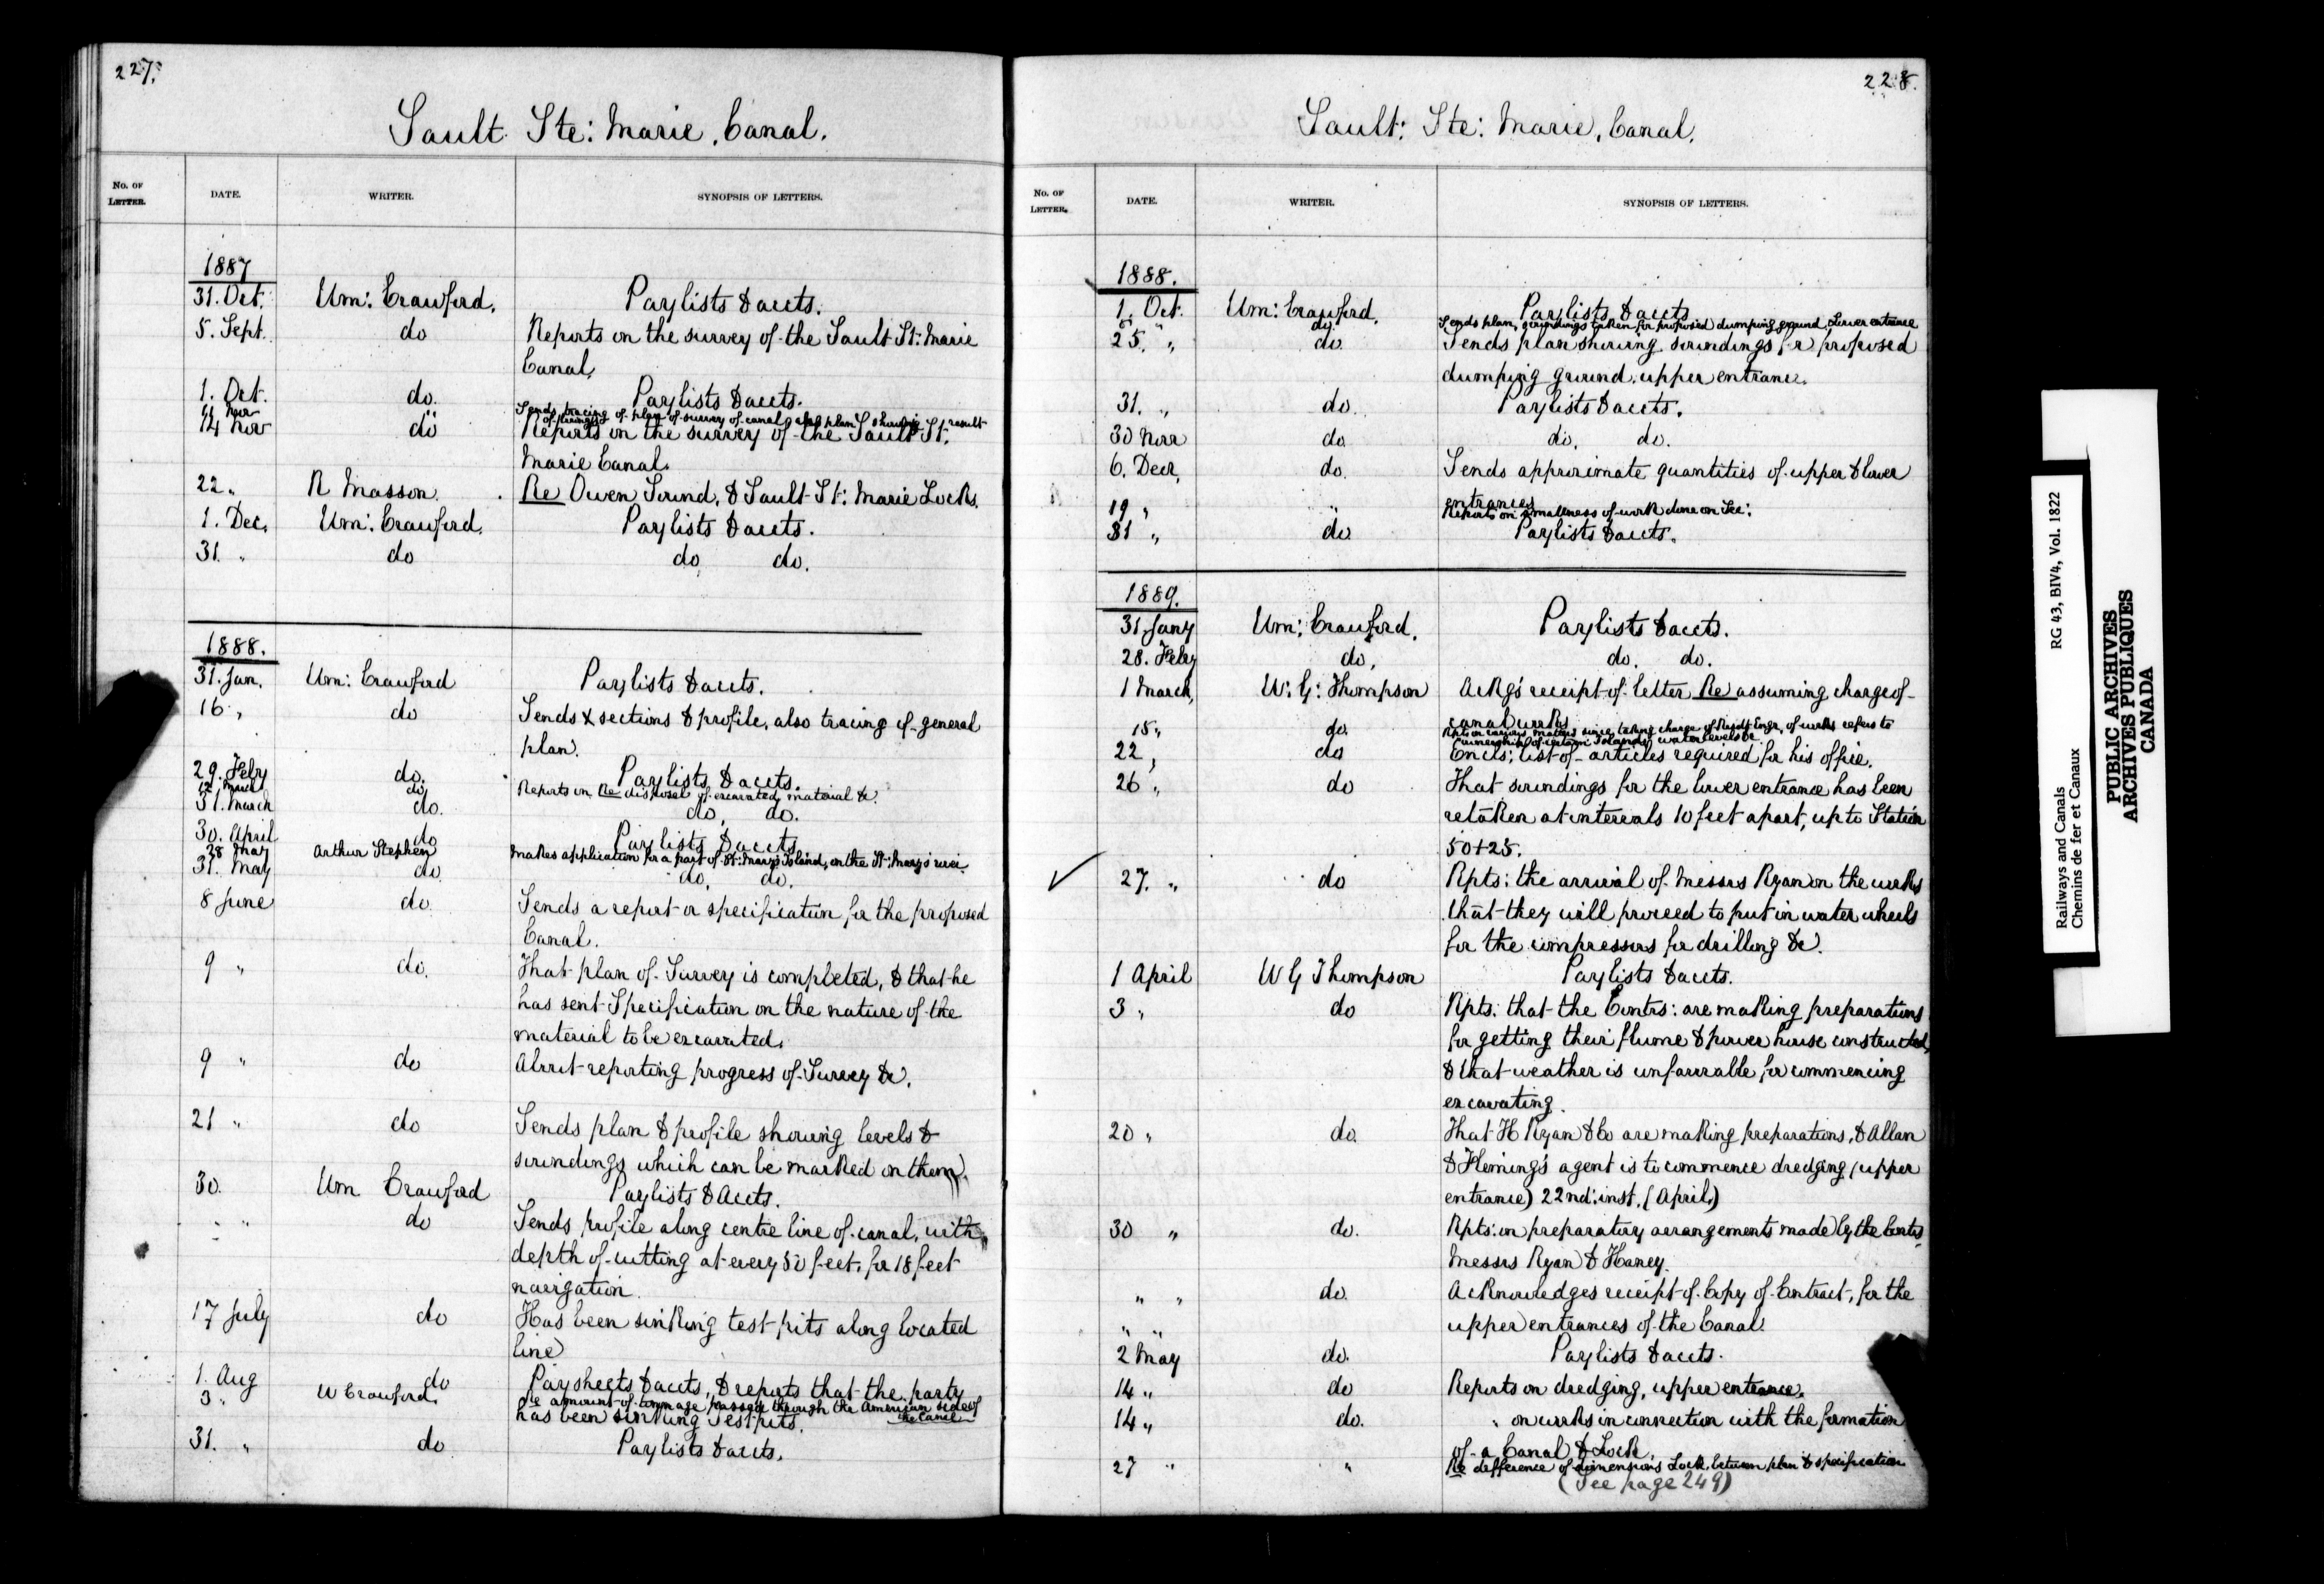 227.
Sault Ste: Marie, Canal.
No. OF LETTER. DATE. WRITER. SYNOPSIS OF LETTERS.
1887
31. Oct. Wm: Crawford. Paylists & accts.
5. Sept. do Reports on the survey of the Sault St: Marie
Canal.
1. Oct. do. Paylists & accts.
11 Nov " Sends tracing of plan of survey of canal also plan showing result
of borings
14 Nov do Reports on the survey of the Sault St.
Marie Canal.
22 " R Masson. Re Owen Sound, & Sault St: Marie Locks.
1. Dec. Wm: Crawford. Paylists & accts.
31. " do do do.
1888.
31. Jan. Wm: Crawford Paylists & accts.
16 " do Sends X sections & profile, also tracing of general
plan.
29. Feby do. Paylists & accts.
12 March do Reports on Re disposal of excavated material &c.
31. March do. do. do.
30. April do Paylists & accts
28 May Arthur Stephen Makes application for a part of St: Mary's Island, on the St: Mary's river
31. May do do. do.
8 June do. Sends a report or specification for the proposed
Canal.
9 " do. That plan of Survey is completed, & that he
has sent Specification on the nature of the
material to be excavated.
9 " do About reporting progress of Survey &c.
21 " do Sends plan & profile showing levels &
soundings which can be marked on them.
30. Wm Crawford Paylists & Accts.
" " do Sends profile along centre line of canal, with
depth of cutting at every 50 feet, for 18 feet
navigation.
17 July do Has been sinking test pits along located
line
1. Aug do Paysheets & accts, & reports that the party
3 " W Crawford. Re amount of tonnage passed through the American side of
the Canal
has been sinking Test pits.
31. " do Paylists & accts.
228.
Sault: Ste: Marie, Canal.
No. OF LETTER. DATE. WRITER. SYNOPSIS OF LETTERS.
1888.
1. Oct. Wm: Crawford. Paylists & accts
5. " do. Sends plan, soundings taken for proposed dumping ground Lower entrance
25. " do. Sends plan showing soundings for proposed
dumping ground, upper entrance.
31. " do. Paylists & accts.
30 Novr do. do. do.
6. Decr. do. Sends approximate quantities of upper & lower
entrances
19 " " Reports on smallness of work done on Sec:
31 " do. Paylists & accts.
1889.
31 Jany Wm: Crawford. Paylists & accts.
28. Feby do. do. do.
1 March, W: G: Thompson Ackg's receipt of letter Re assuming charge of
canal works
15 " do. Rpts on various matters since taking charge of Resdt Engr. of works refers to
ownership of certain Islands, water levels &c
22 " do Encls: list of articles required for his office.
26 " do That soundings for the lower entrance has been
retaken at intervals 10 feet apart, up to Station
50+25.
✓ 27. " do Rpts: the arrival of Messrs Ryan on the works
that they will proceed to put in water wheels
for the compressors for drilling &c.
1 April W G Thompson Paylists & accts.
3 " do Rpts: that the Contrs: are making preparations
for getting their flume & power house constructed,
& that weather is unfavorable for commencing
excavating.
20 " do. That H Ryan & Co are making preparations, & Allan
& Fleming's agent is to commence dredging (upper
entrance) 22nd: inst. (April)
30 " do. Rpts: on preparatory arrangements made by the Contrs
Messrs Ryan & Haney.
" " do. Acknowledges receipt of Copy of Contract, for the
upper entrances of the Canal.
" "
2 May do. Paylists & accts.
14 " do Reports on dredging, upper entrance.
14 " do. " on works in connection with the formation
of a Canal & Lock.
27 " " Re defference of dimensions Lock, between plan & specification
(See page 249)
Railways and Canals RG 43, BIV4, Vol. 1822
Chemins de fer et Canaux
PUBLIC ARCHIVES
ARCHIVES PUBLIQUES
CANADA